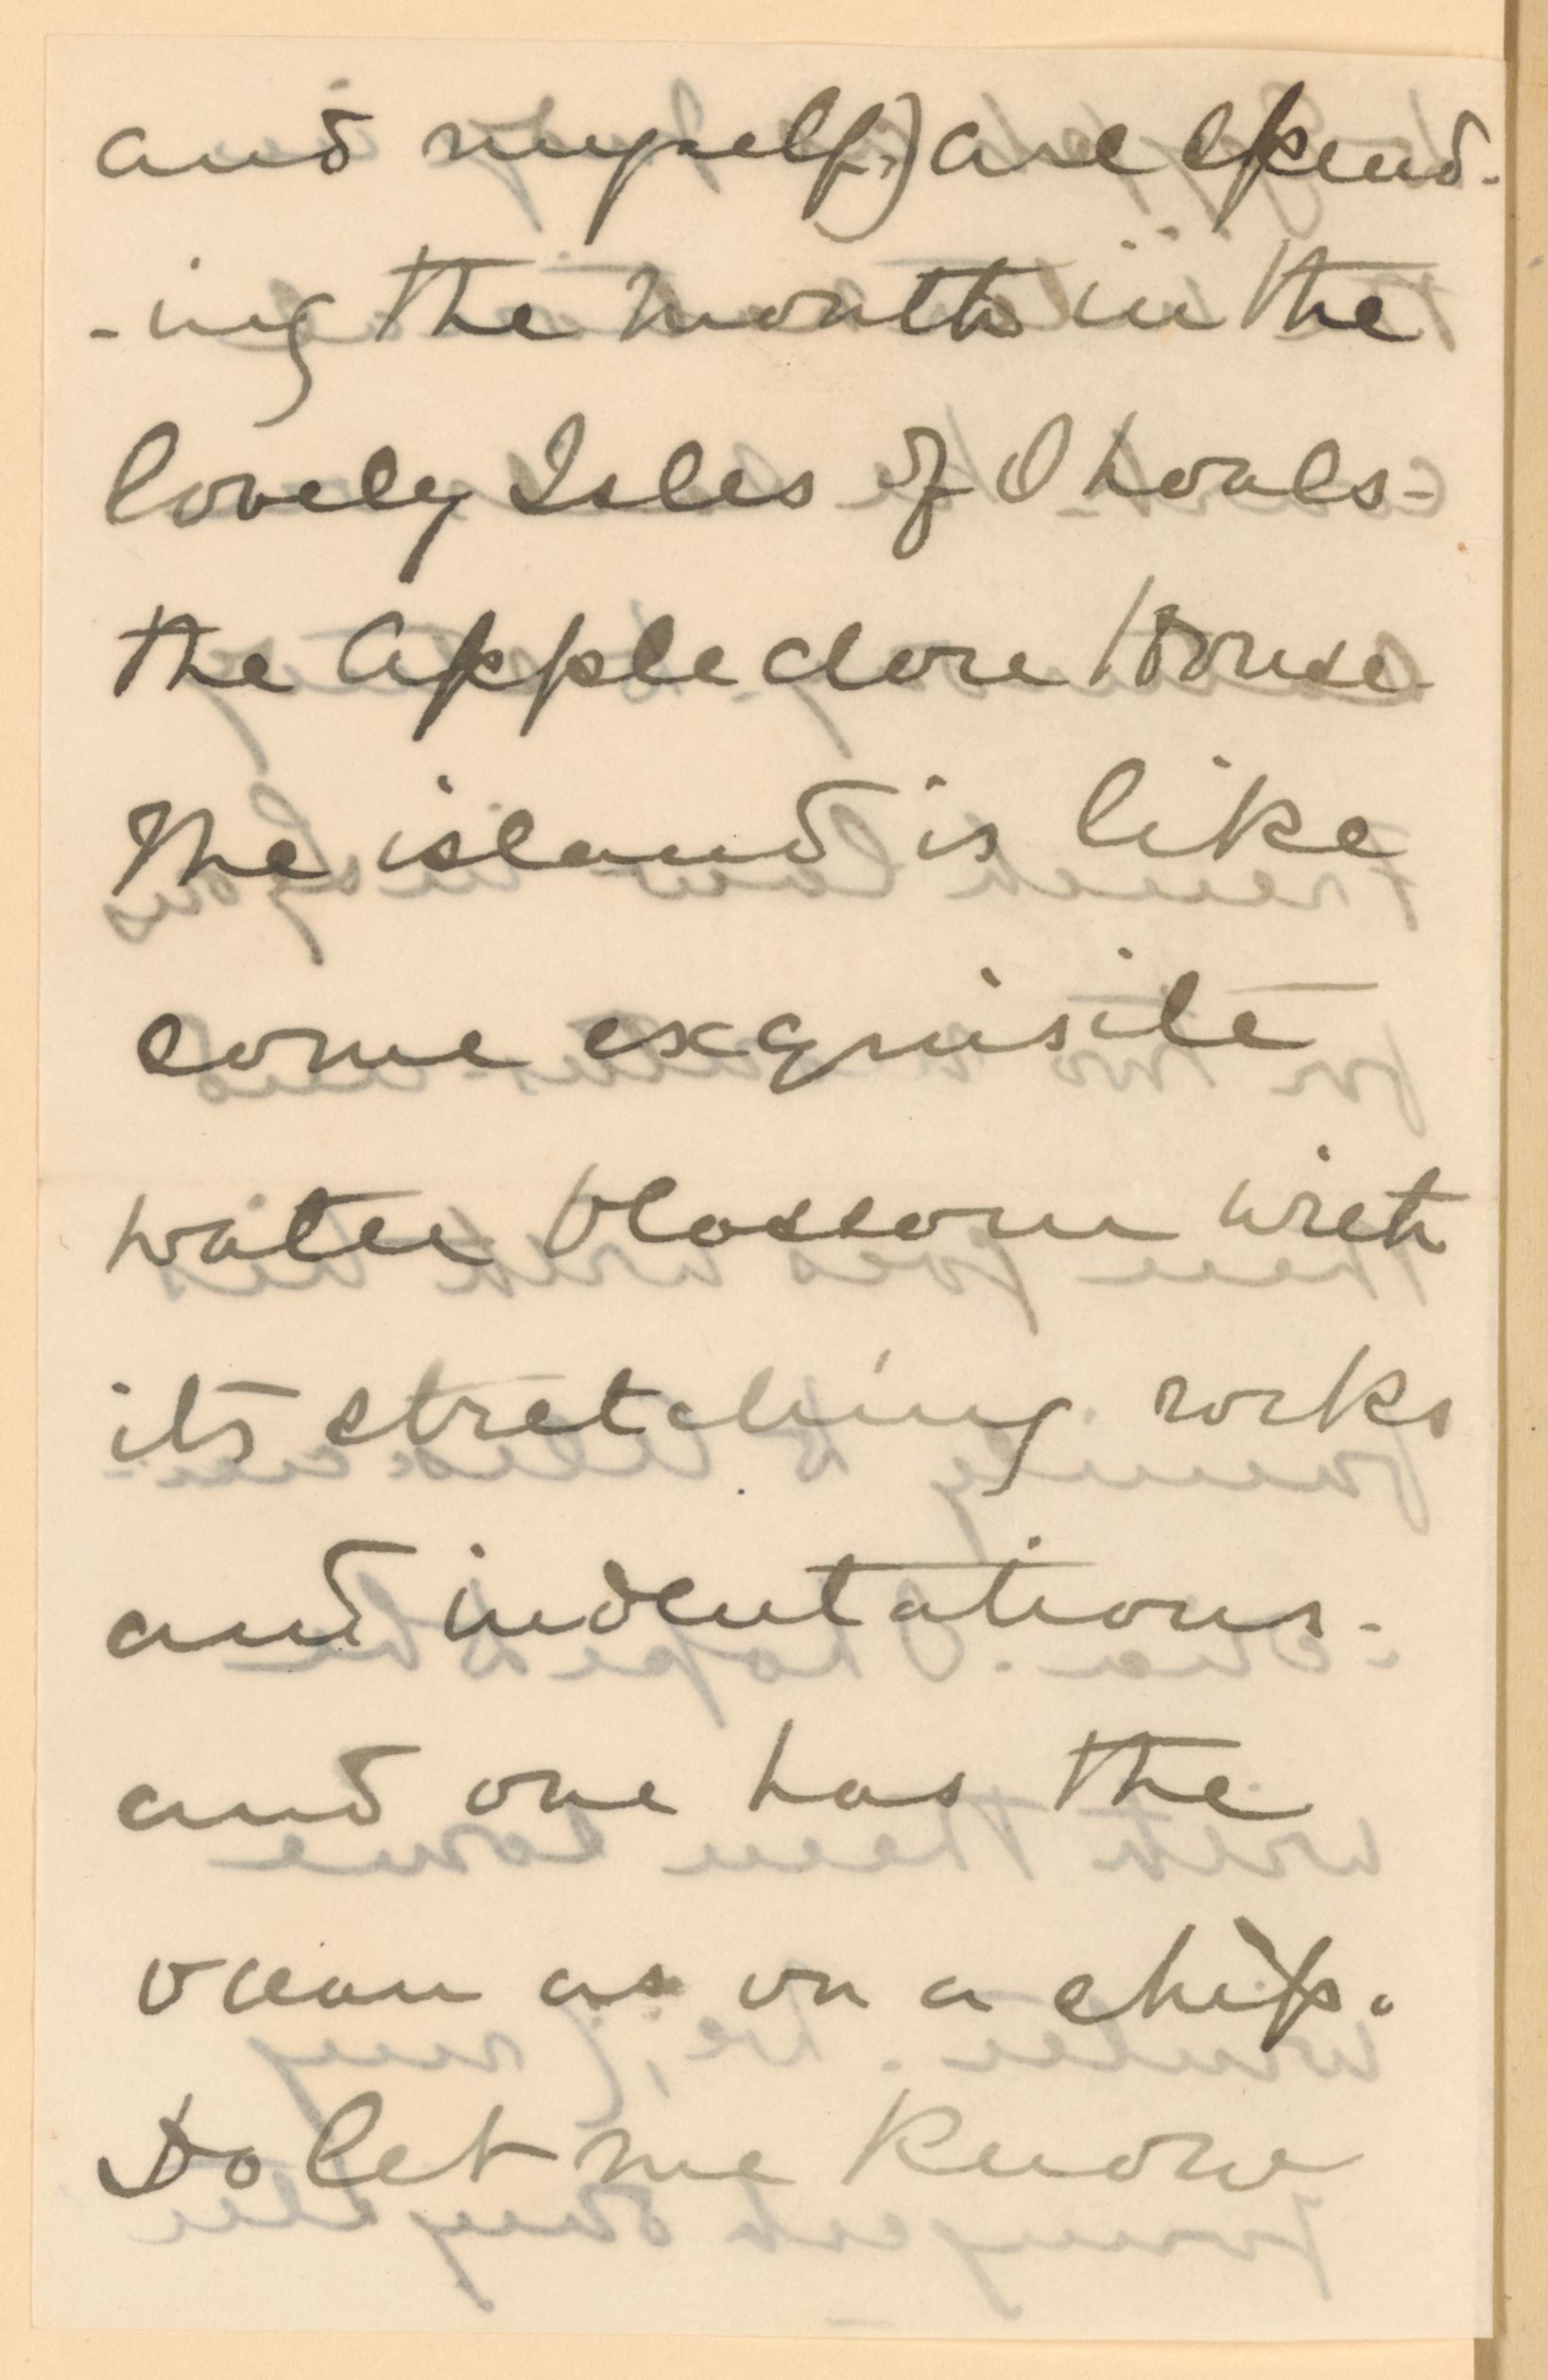 and myself.) are spend-
-ing the month in the
lovely Isles of Shoals-
the Appledore House
The island is like
some exquisite
water blossom with
its stretching rocks
and indentations.
and one has the
ocean as on a ship.
Do let me know